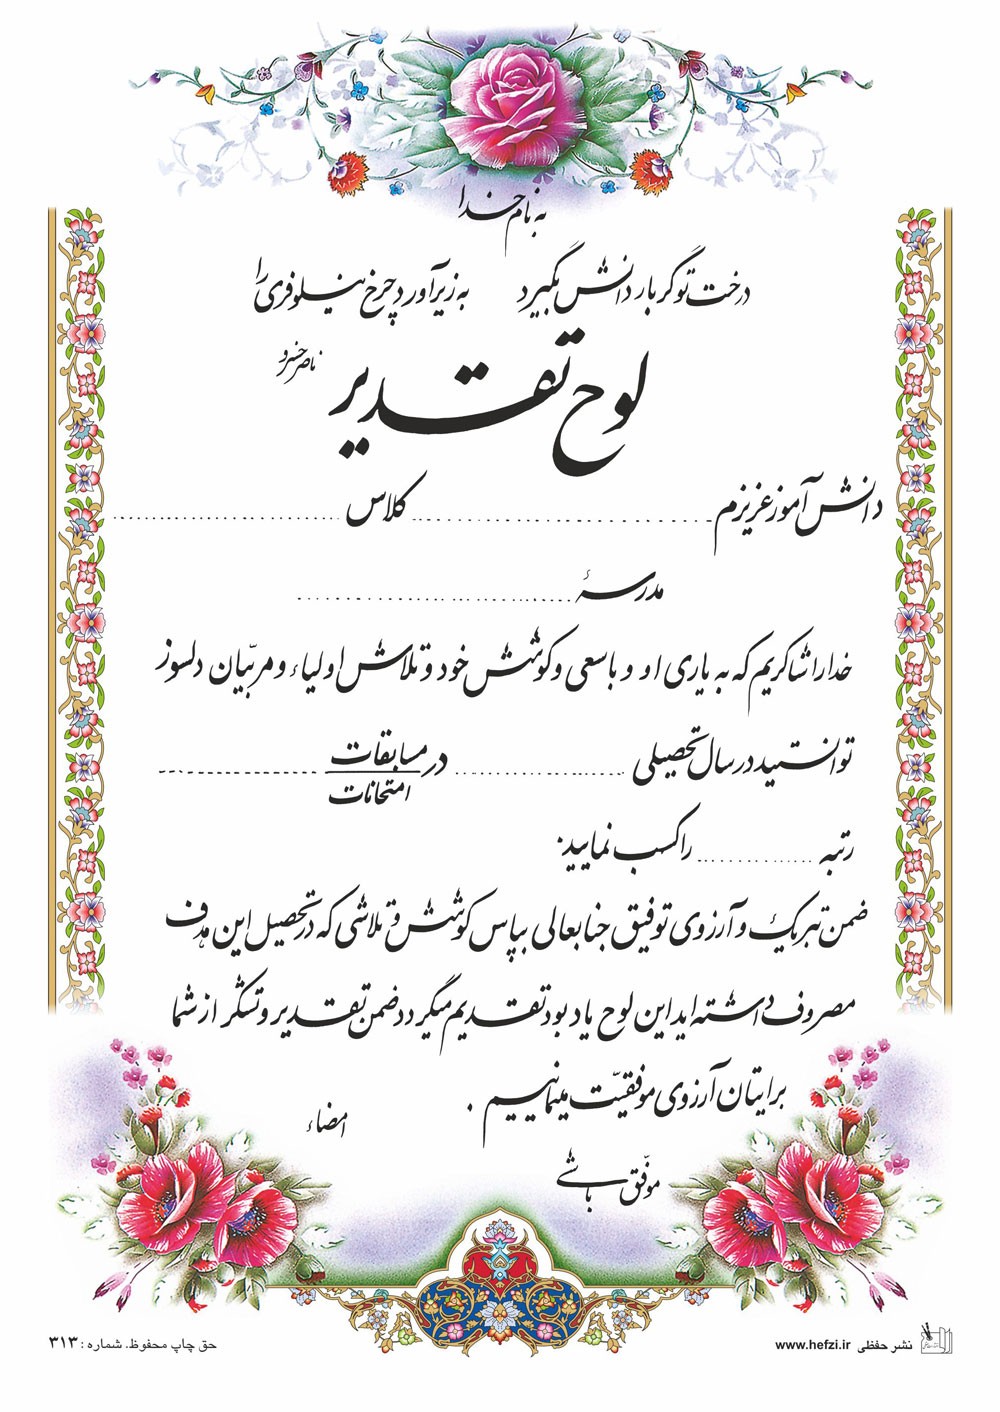 به نام خدا
درخت تو گر بار دانش بگیرد به زیر آورد چرخ نیلوفری را
ناصر خسرو
لوح تقدیر
دانش آموز عزیزم ........................ کلاس ........................
مدرسهٔ ........................
خدا را شاکریم که به یاری او و با سعی و کوشش خود و تلاش اولیاء و مربّیان دلسوز
توانستید در سال تحصیلی ........................ در مسابقات ........................
امتحانات
رتبه ............ را کسب نمایید.
ضمن تبریک و آرزوی توفیق جنابعالی بپاس کوشش و تلاشی که در تحصیل این هدف
مصروف داشته اید این لوح یاد بود تقدیم میگردد ضمن تقدیر و تشکّر از شما
برایتان آرزوی موفقیّت مینمائیم .
امضاء
موفّق باشی
نشر حفظی www.hefzi.ir
حق چاپ محفوظ. شماره : ۳۱۳